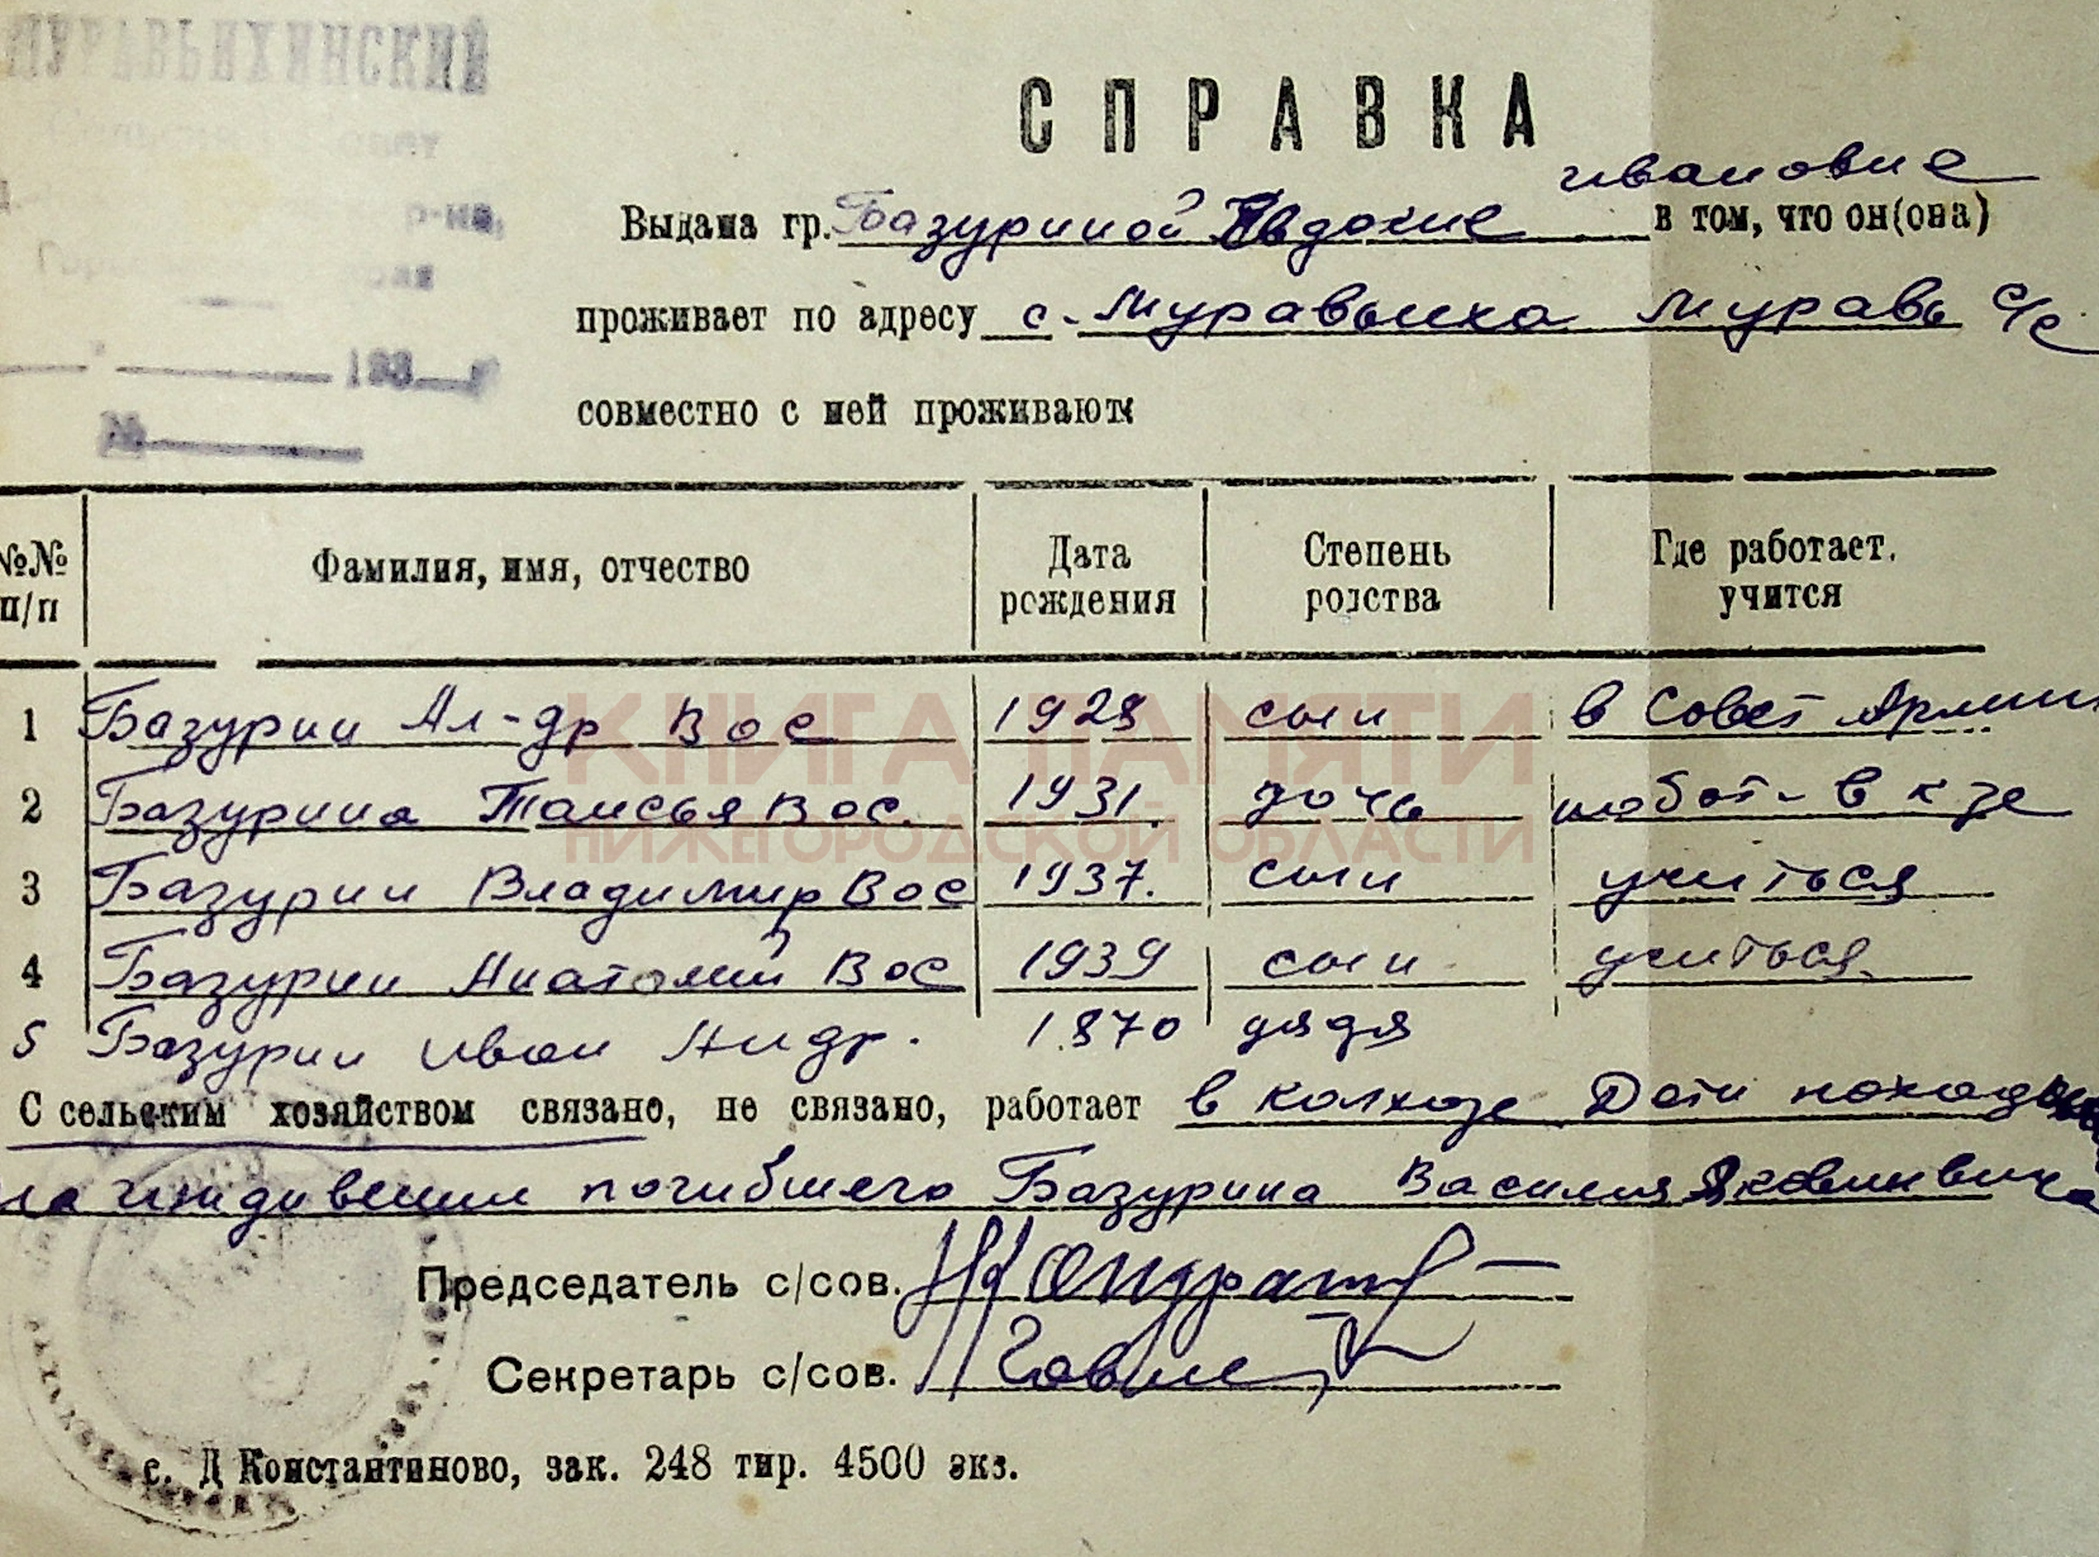 МУРАВЬИХИНСКИЙ
р-на,
193
№
СПРАВКА
Ивановне
Выдана гр. Базуриной Евдокие в том, что он(она)
проживает по адресу с. Муравьиха Муравь с/с
совместно с ней проживают:
№№ п/п Фамилия, имя, отчество Дата рождения Степень родства Где работает, учится
1 Базурин Ал-др Вас 1928 сын в Совет Армии
2 Базурина Таисья Вас. 1931. дочь работ- в к-зе
3 Базурин Владимир Вас 1937. сын учиться
4 Базурин Анатолий Вас 1939 сын учиться
5 Базурин Иван Андр. 1870 дядя
С сельским хозяйством связано, не связано, работает в колхозе Дети находились
на иждивении погибшего Базурина Василия Яковлевича
Председатель с/сов. Кондрат
Секретарь с/сов.
с. Д Константиново, зак. 248 тир. 4500 экз.
КНИГА ПАМЯТИ
НИЖЕГОРОДСКОЙ ОБЛАСТИ